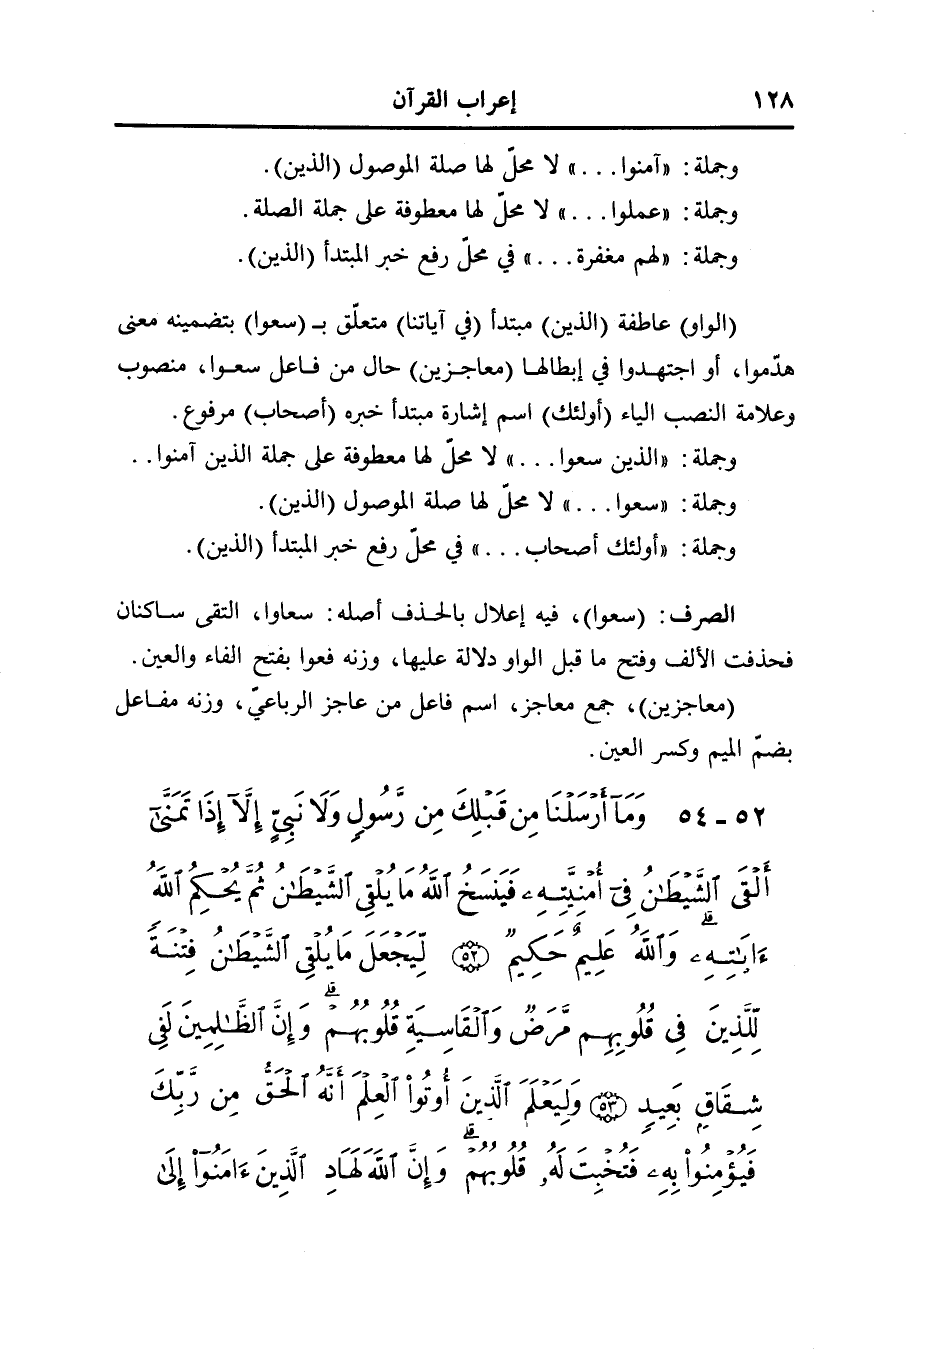 ١٢٨ إعراب القرآن
وجملة: «آمنوا. . .» لا محلّ لها صلة الموصول (الذين).
وجملة: «عملوا. . .» لا محلّ لها معطوفة على جملة الصلة.
وجملة: «لهم مغفرة. . .» في محلّ رفع خبر المبتدأ (الذين).
(الواو) عاطفة (الذين) مبتدأ (في آياتنا) متعلّق بـ (سعوا) بتضمينه معنى
هدّموا، أو اجتهدوا في إبطالها (معاجزين) حال من فاعل سعوا، منصوب
وعلامة النصب الياء (أولئك) اسم إشارة مبتدأ خبره (أصحاب) مرفوع.
وجملة: «الذين سعوا. . .» لا محلّ لها معطوفة على جملة الذين آمنوا. .
وجملة: «سعوا. . .» لا محلّ لها صلة الموصول (الذين).
وجملة: «أولئك أصحاب. . .» في محلّ رفع خبر المبتدأ (الذين).
الصرف: (سعوا)، فيه إعلال بالحذف أصله: سعاوا، التقى ساكنان
فحذفت الألف وفتح ما قبل الواو دلالة عليها، وزنه فعوا بفتح الفاء والعين.
(معاجزين)، جمع معاجز، اسم فاعل من عاجز الرباعيّ، وزنه مفاعل
بضمّ الميم وكسر العين.
٥٢ - ٥٤ وَمَآ أَرْسَلْنَا مِن قَبْلِكَ مِن رَّسُولٍ وَلَا نَبِيٍّ إِلَّآ إِذَا تَمَنَّىٰٓ
أَلْقَى ٱلشَّيْطَٰنُ فِىٓ أُمْنِيَّتِهِۦ فَيَنسَخُ ٱللَّهُ مَا يُلْقِى ٱلشَّيْطَٰنُ ثُمَّ يُحْكِمُ ٱللَّهُ
ءَايَٰتِهِۦۗ وَٱللَّهُ عَلِيمٌ حَكِيمٌ ﴿٥٢﴾ لِّيَجْعَلَ مَا يُلْقِى ٱلشَّيْطَٰنُ فِتْنَةً
لِّلَّذِينَ فِى قُلُوبِهِم مَّرَضٌ وَٱلْقَاسِيَةِ قُلُوبُهُمْۗ وَإِنَّ ٱلظَّٰلِمِينَ لَفِى
شِقَاقٍۭ بَعِيدٍ ﴿٥٣﴾ وَلِيَعْلَمَ ٱلَّذِينَ أُوتُواْ ٱلْعِلْمَ أَنَّهُ ٱلْحَقُّ مِن رَّبِّكَ
فَيُؤْمِنُواْ بِهِۦ فَتُخْبِتَ لَهُۥ قُلُوبُهُمْۗ وَإِنَّ ٱللَّهَ لَهَادِ ٱلَّذِينَ ءَامَنُوٓاْ إِلَىٰ